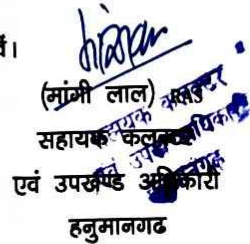 वें।
(मांगी लाल) RAS
सहायक कलक्टर
एवं उपखण्ड अधिकारी
हनुमानगढ